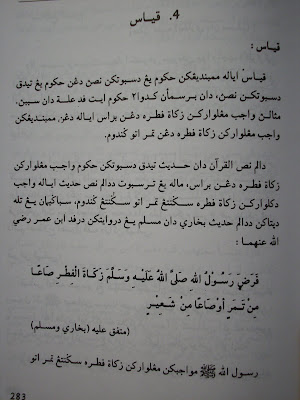 4. قياس
قياس :
قياس اياله ممبنديڠكن حكوم يڠ دسبوتكن نصڽ دڠن حكوم يڠ تيدق
دسبوتكن نصڽ، دان برسمأن كدوا٢ حكوم ايت فد علة دان سببڽ.
مثالڽ واجب مڠلواركن زكاة فطره دڠن براس اياله دڠن ممبنديڠكن
واجب مڠلواركن زكاة فطره دڠن تمر اتو ݢندوم.
دالم نص القرآن دان حديث تيدق دسبوتكن حكوم واجب مڠلواركن
زكاة فطره دڠن براس، ماله يڠ ترسبوت ددالم نص حديث اياله واجب
دكلواركن زكاة فطره سݢنتڠ تمر اتو سݢنتڠ ݢندوم، سباݢيمان يڠ تله
دپتاكن ددالم حديث بخاري دان مسلم يڠ دروايتكن درفد ابن عمر رضي
الله عنهما :
فَرَضَ رَسُوْلُ اللهِ صَلَّى اللهُ عَلَيْهِ وَسَلَّمَ زَكَاةَ الْفِطْرِ صَاعًا
مِنْ تَمَرٍ أَوْصَاعًا مِنْ شَعِيْرٍ
(متفق عليه (بخاري ومسلم)
رسول الله ﷺ مواجبكن مڠلواركن زكاة فطره سݢنتڠ تمر اتو
283